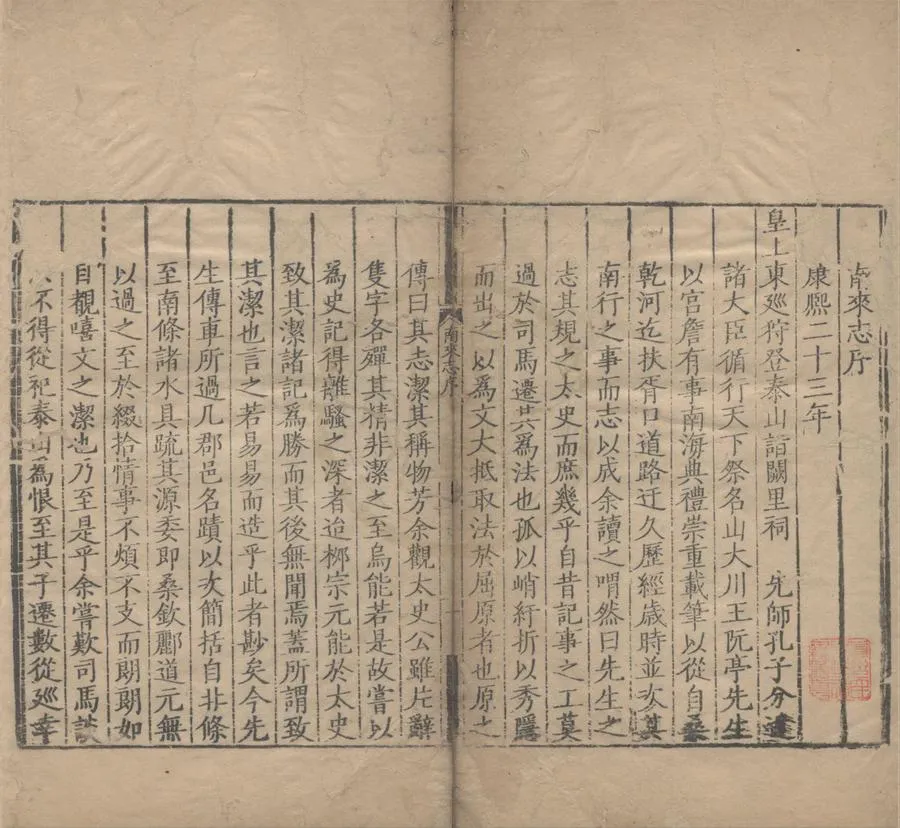 南來志序
康熙二十三年
皇上東廵狩登泰山詣闕里祠 先師孔子分遣
諸大臣循行天下祭名山大川王阮亭先生
以宮詹有事南海典禮崇重載筆以從自桑
乾河迄扶胥口道路迂久歷經歲時並次其
南行之事而志以成余讀之喟然曰先生之
志其規之太史而庶幾乎自昔記事之工莫
過於司馬遷其為法也孤以峭紆折以秀隱
而出之以為文大抵取法於屈原者也原之
南來志序
一
傳曰其志潔其稱物芳余觀太史公雖片辭
隻字各殫其精非潔之至烏能若是故嘗以
為史記得離騷之深者迨栁宗元能於太史
致其潔諸記為勝而其後無聞焉蓋所謂致
其潔也言之若易易而造乎此者尠矣今先
生傳車所過凡郡邑名蹟以次簡括自非條
至南條諸水具疏其源委即桑欽酈道元無
以過之至於綴拾情事不煩不支而朗朗如
目覩嘻文之潔也乃至是乎余嘗歎司馬談
不得從祀泰山為恨至其子遷數從廵幸